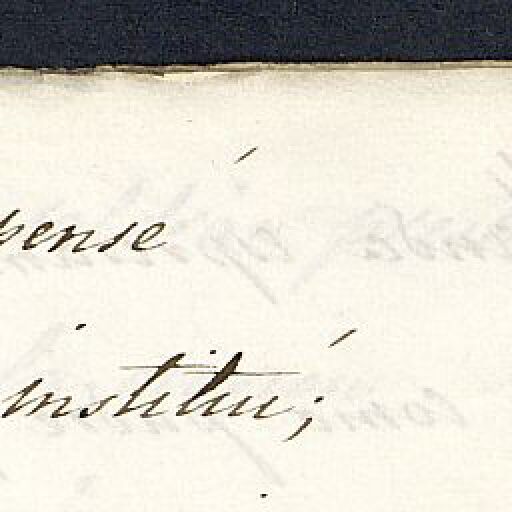 pensé
institué;